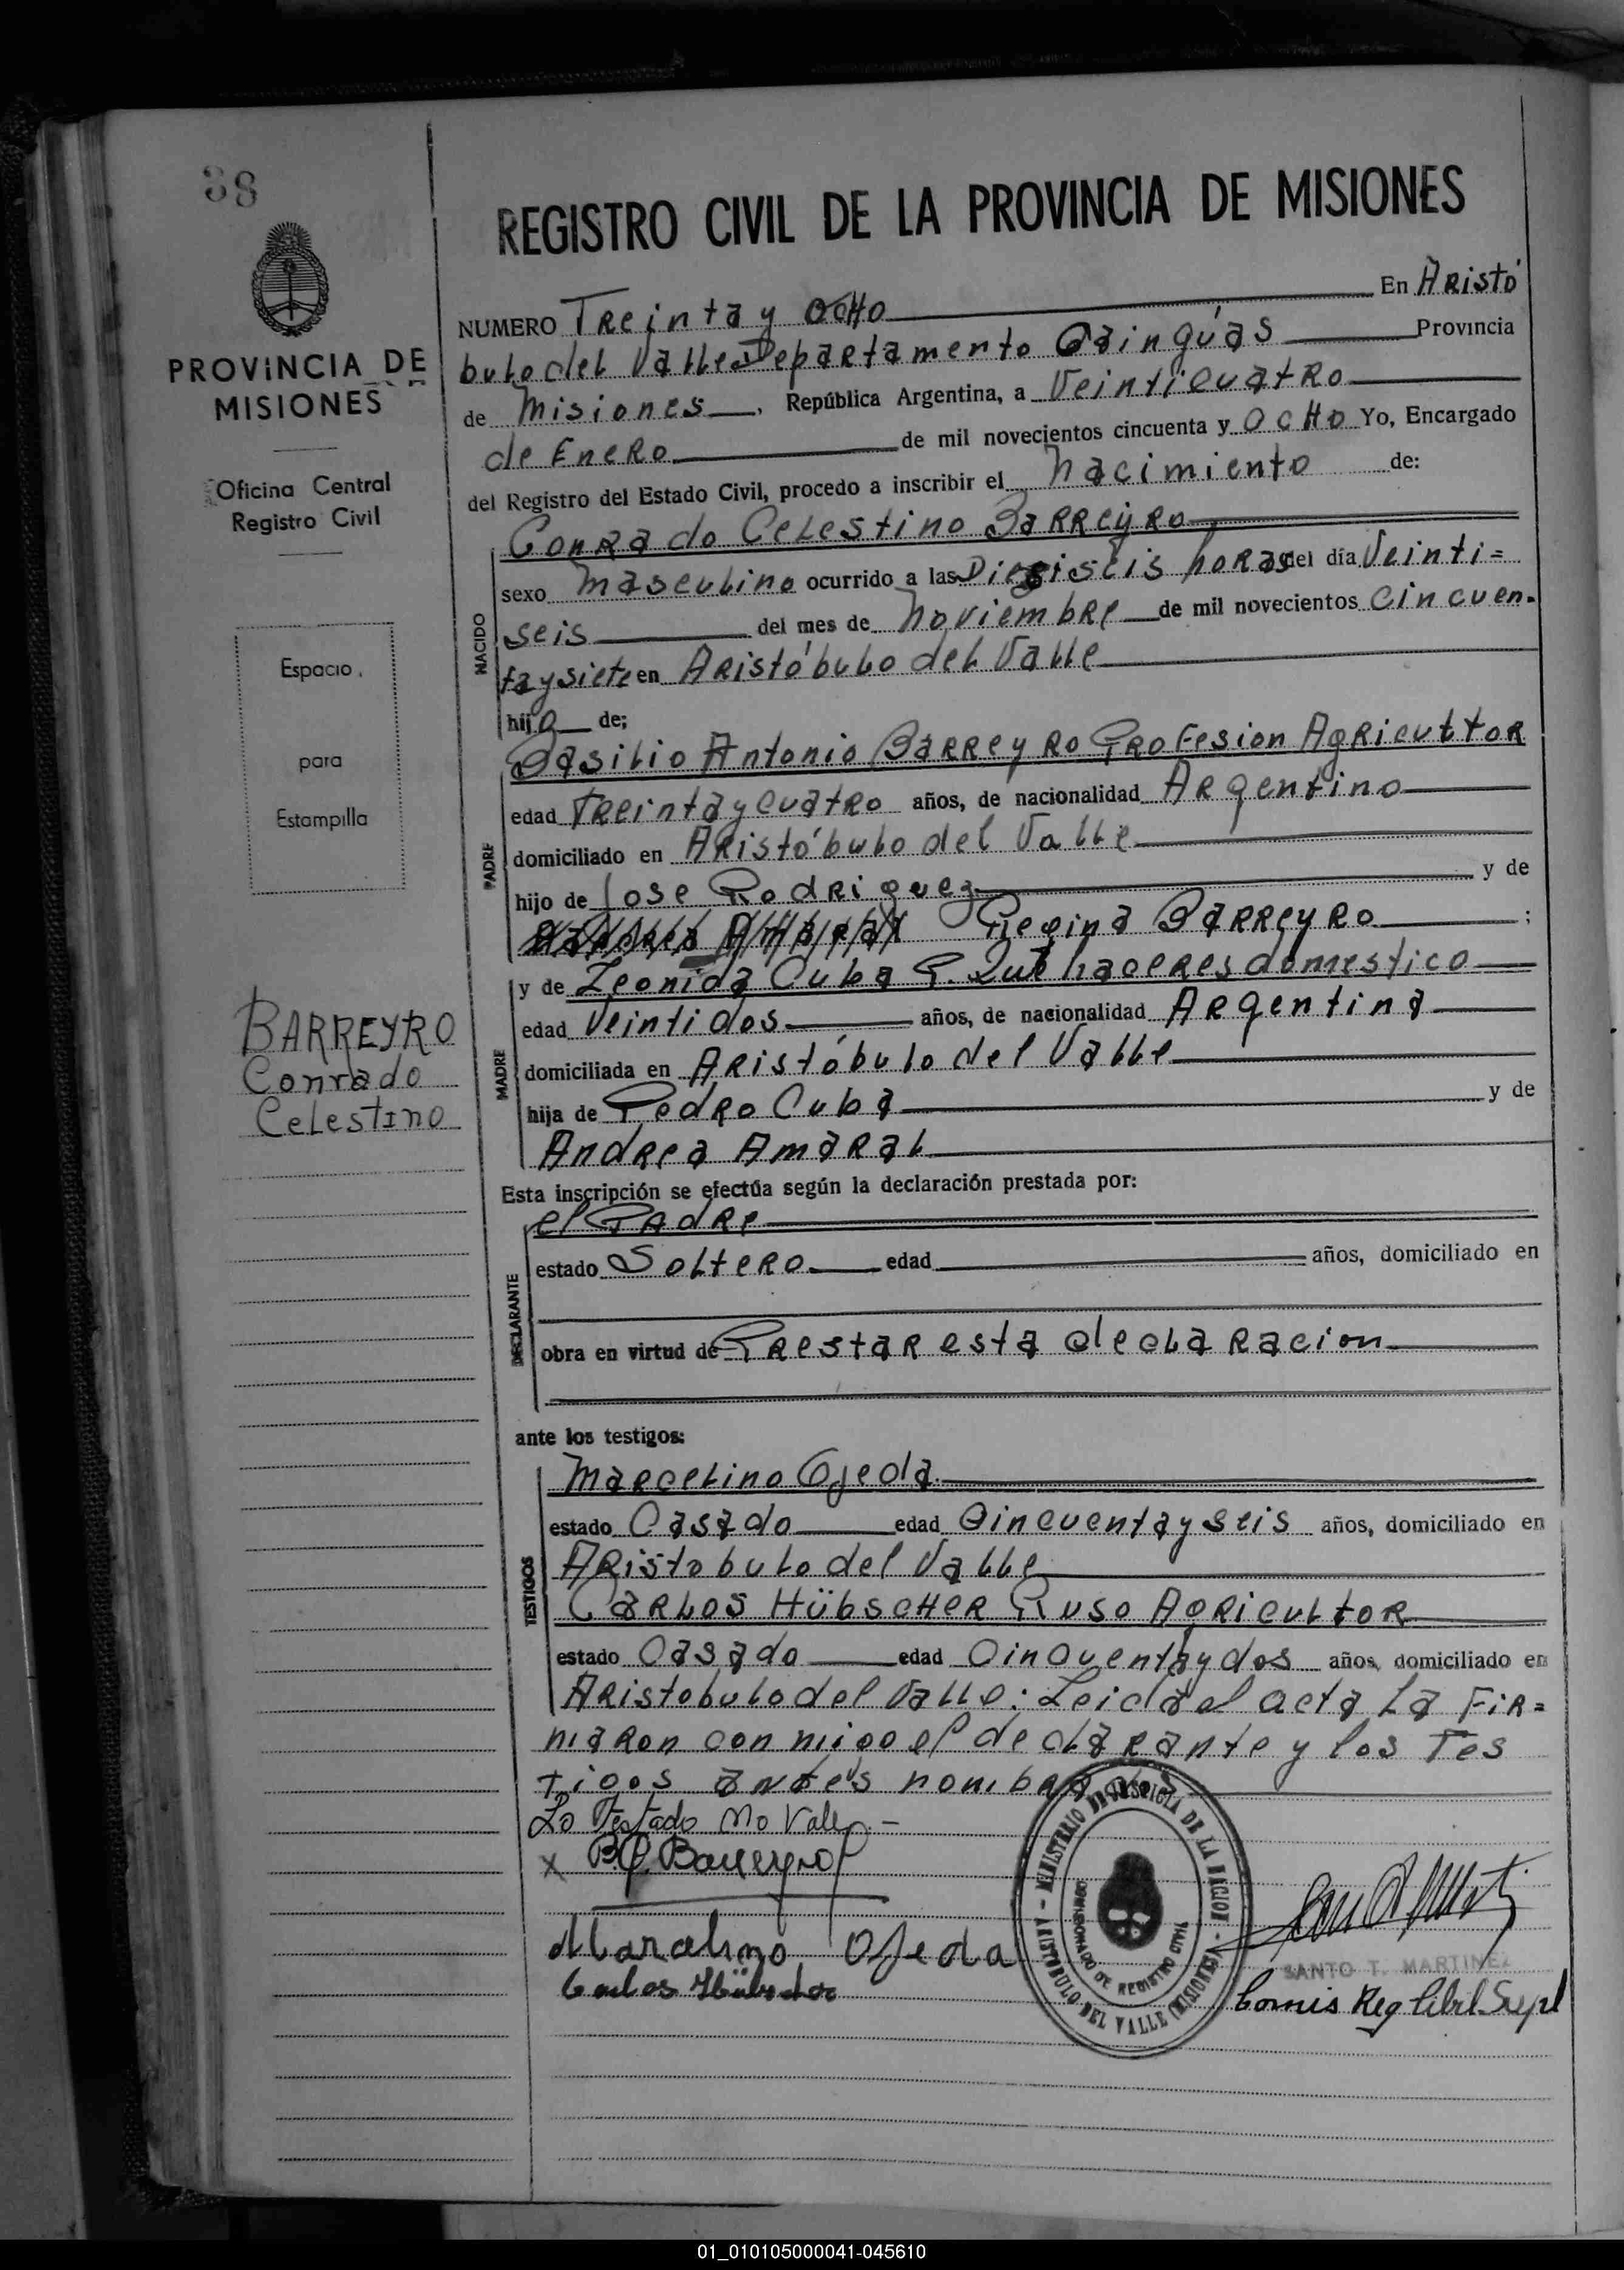 38
PROVINCIA DE
MISIONES
Oficina Central
Registro Civil
Espacio
para
Estampilla
BARREYRO
Conrado
Celestino
REGISTRO CIVIL DE LA PROVINCIA DE MISIONES
NUMERO Treinta y Ocho En Aristó
bulo del Valle Departamento Cainguás Provincia
de Misiones, República Argentina, a Veinticuatro
de Enero de mil novecientos cincuenta y Ocho Yo, Encargado
del Registro del Estado Civil, procedo a inscribir el Nacimiento de:
NACIDO
Conrado Celestino Barreyro
sexo Masculino ocurrido a las Dieciseis horas del día Veinti=
seis del mes de Noviembre de mil novecientos Cincuen-
ta y siete en Aristóbulo del Valle
hijo de;
PADRE
Basilio Antonio Barreyro Profesion Agricultor
edad Treinta y Cuatro años, de nacionalidad Argentino
domiciliado en Aristóbulo del Valle
hijo de Jose Rodriguez y de
Regina Barreyro ;
MADRE
y de Leonida Cuba P. Que haceres domestico
edad Veintidos años, de nacionalidad Argentina
domiciliada en Aristóbulo del Valle
hija de Pedro Cuba y de
Andrea Amaral
Esta inscripción se efectúa según la declaración prestada por:
DECLARANTE
el Padre
estado Soltero edad años, domiciliado en
obra en virtud de Prestar esta declaracion
ante los testigos:
TESTIGOS
Marcelino Ojeda
estado Casado edad Cincuenta y seis años, domiciliado en
Aristobulo del Valle
Carlos Hübscher Ruso Agricultor
estado Casado edad Cincuenta y dos años, domiciliado en
Aristobulo del Valle: Leida el acta La Fir=
maron conmigo el declarante y los Tes
tigos antes nombrados
Lo Testado No Vale.-
x B.A. Barreyro
Marcelino Ojeda
Carlos Hübscher
MINISTERIO DE JUSTICIA DE LA NACION - ARISTOBULO DEL VALLE (MISIONES) -
DE REGISTRO CIVIL
SANTO T. MARTINEZ
Comis Reg Civil Supl
01_010105000041-045610